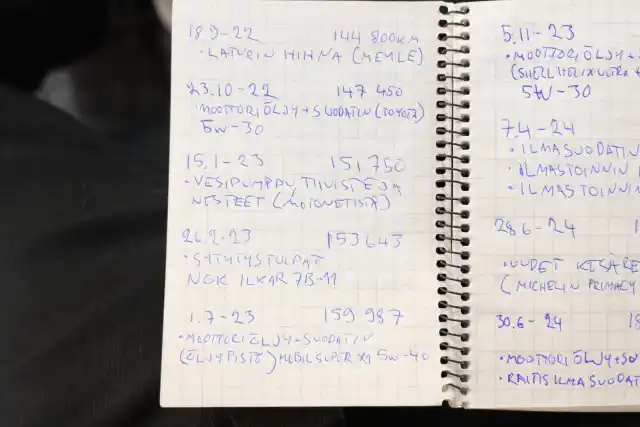 18.9-22 144 800KM
• LATURIN HIHNA (MEYLE)
23.10-22 147 450
• MOOTTORIÖLJY + SUODATIN (TOYOTA)
5W-30
15.1-23 151,750
• VESIPUMPPU, TIIVISTE JA
NESTEET (MOTONETISTÄ)
26.2-23 153643
• SYTYTYSTULPAT
NGK ILKAR 7B-11
1.7-23 159 987
• MOOTTORIÖLJY+SUODATIN
(ÖLJYPISTE) MOBIL SUPER X1 5W-40
5.11-23
• MOOTTORIÖLJY+
(SHELL HELIX ULTRA
5W-30
7.4-24
• ILMASUODATIN
• ILMASTOINNIN
• ILMASTOINNIN
28.6-24
• UUDET KESÄRE
(MICHELIN PRIMACY
30.6-24
• MOOTTORIÖLJY+SU
• RAITISILMASUODAT